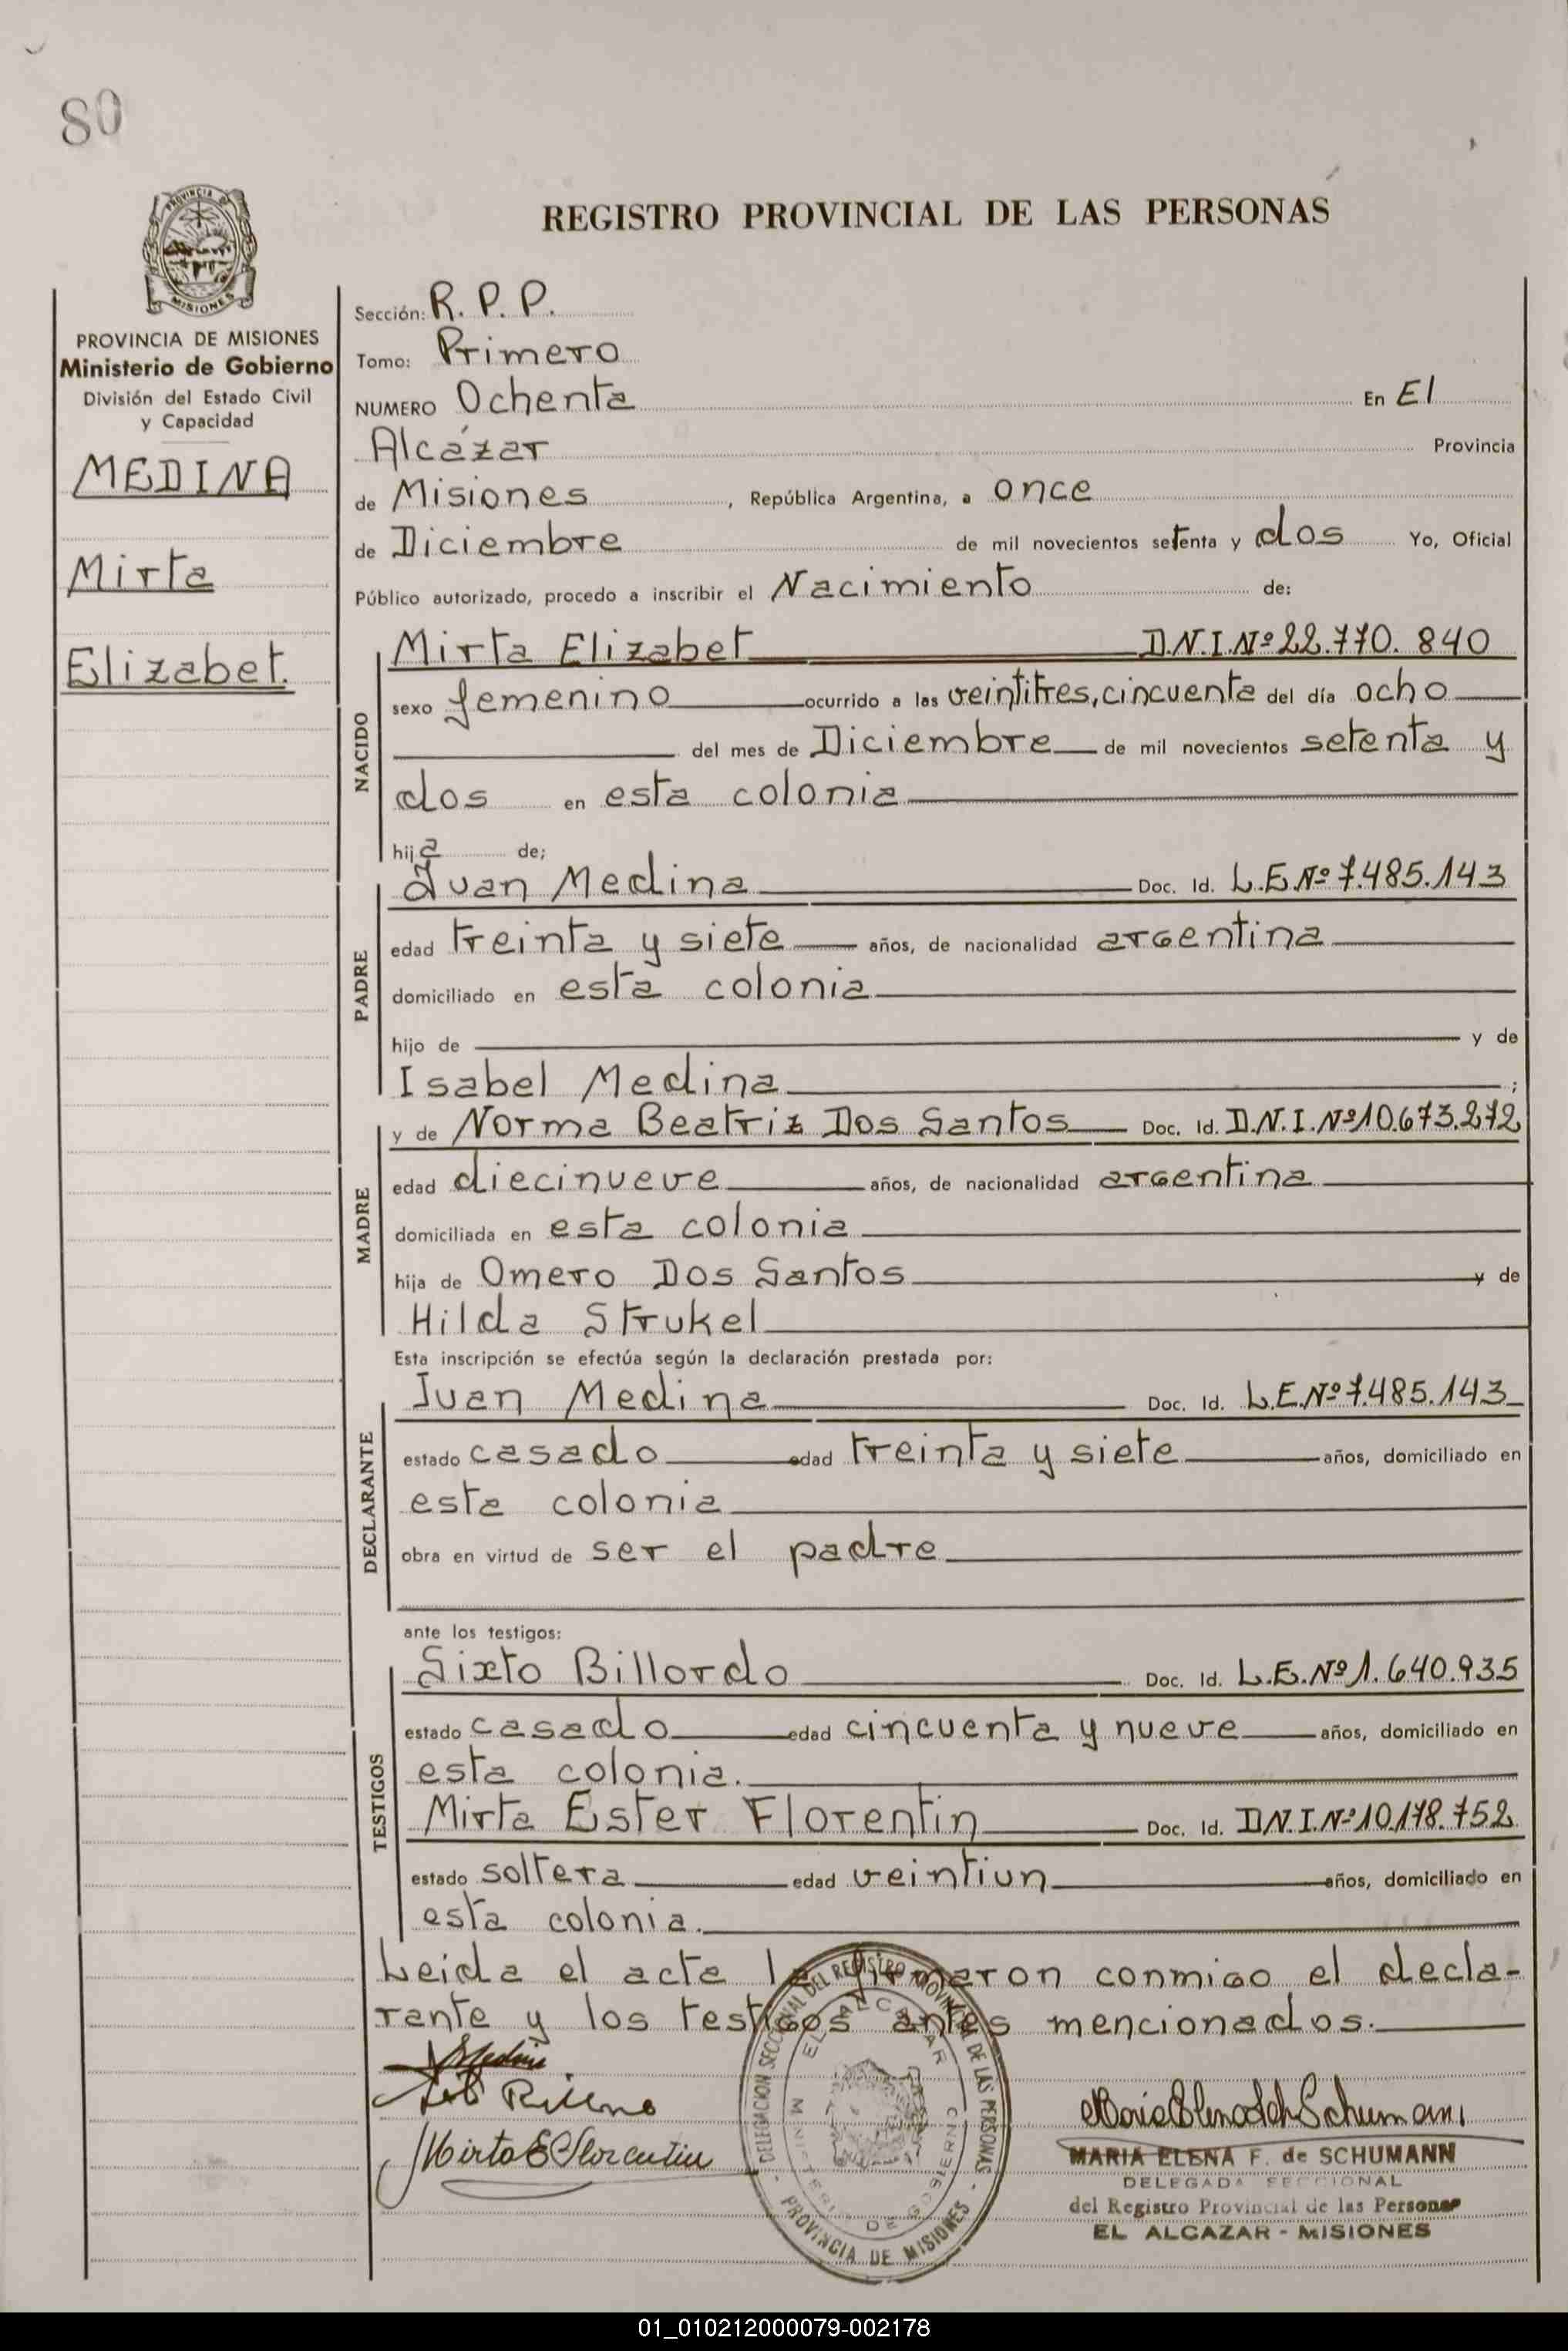 80
PROVINCIA
MISIONES
REGISTRO PROVINCIAL DE LAS PERSONAS
PROVINCIA DE MISIONES
Ministerio de Gobierno
División del Estado Civil
y Capacidad
MEDINA
Mirta
Elizabet.
Sección: R. P. P.
Tomo: Primero
NUMERO Ochenta En El
Alcázar Provincia
de Misiones, República Argentina, a once
de Diciembre de mil novecientos setenta y dos Yo, Oficial
Público autorizado, procedo a inscribir el Nacimiento de:
NACIDO
Mirta Elizabet D.N.I.Nº22.770.840
sexo femenino ocurrido a las veintitres, cincuenta del día ocho
del mes de Diciembre de mil novecientos setenta y
dos en esta colonia
hija de;
PADRE
Juan Medina Doc. Id. L.E.Nº7.485.143
edad treinta y siete años, de nacionalidad argentina
domiciliado en esta colonia
hijo de y de
Isabel Medina ;
MADRE
y de Norma Beatriz Dos Santos Doc. Id. D.N.I.Nº10.673.272
edad diecinueve años, de nacionalidad argentina
domiciliada en esta colonia
hija de Omero Dos Santos y de
Hilda Strukel
Esta inscripción se efectúa según la declaración prestada por:
DECLARANTE
Juan Medina Doc. Id. L.E.Nº7.485.143
estado casado edad treinta y siete años, domiciliado en
esta colonia
obra en virtud de ser el padre
ante los testigos:
TESTIGOS
Sixto Billordo Doc. Id. L.E.Nº1.640.935
estado casado edad cincuenta y nueve años, domiciliado en
esta colonia.
Mirta Ester Florentin Doc. Id. D.N.I.Nº10.178.752
estado soltera edad veintiun años, domiciliado en
esta colonia.
Leida el acta la firmaron conmigo el decla-
rante y los testigos antes mencionados.
Medina
Mirta E Florentin
DELEGACION SECCIONAL DEL REGISTRO PROVINCIAL DE LAS PERSONAS
EL ALCAZAR
MINISTERIO DE GOBIERNO
PROVINCIA DE MISIONES
Maria Elena F de Schumann
MARIA ELENA F. de SCHUMANN
DELEGADA SECCIONAL
del Registro Provincial de las Personas
EL ALCAZAR - MISIONES
01_010212000079-002178